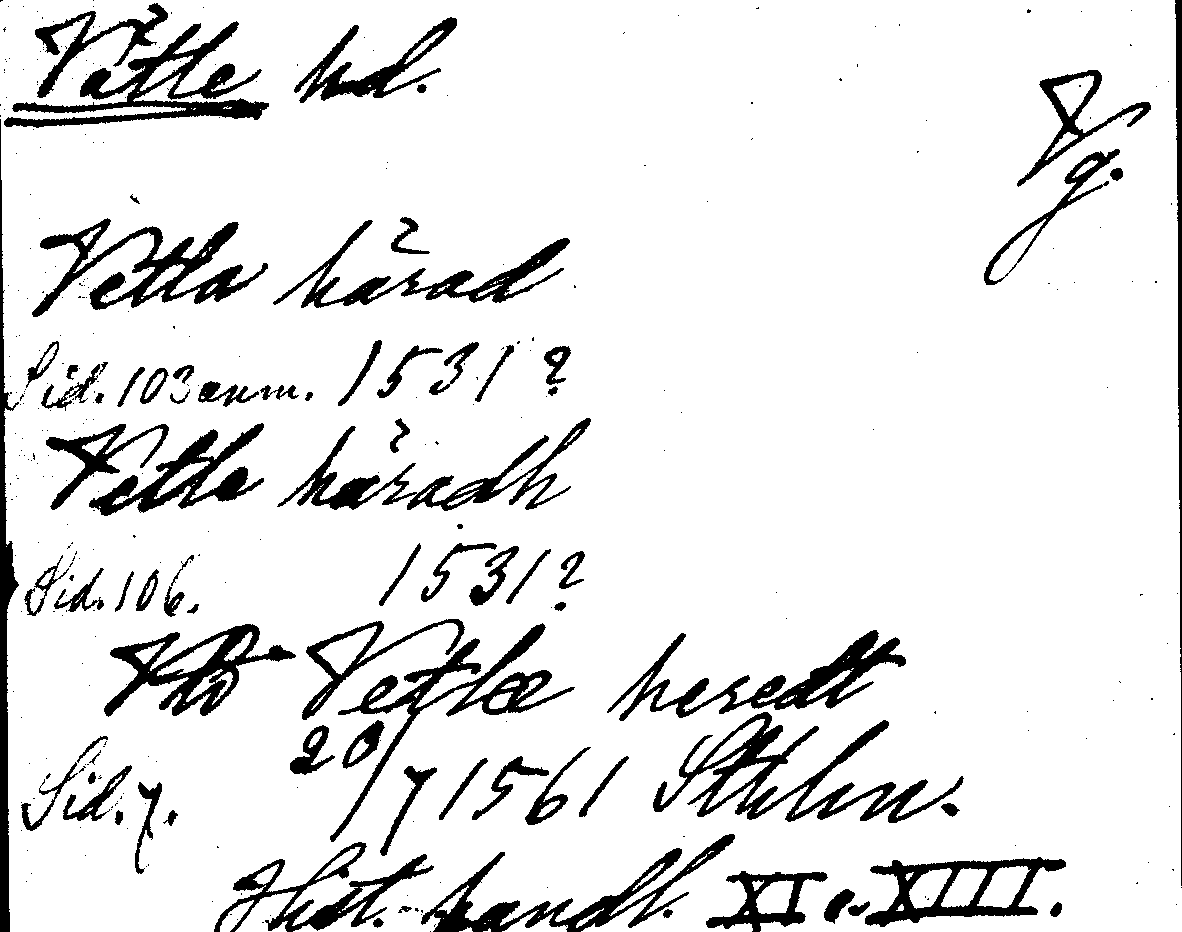 Vättle hd.
Vg.
Vetla härad
Sid. 103 anm. 1531?
Vetle häradh
Sid. 106. 1531?
Vetlæ heredt
Sid. 7. 20/7 1561 Sthlm.
Hist. handl. XI o. XIII.